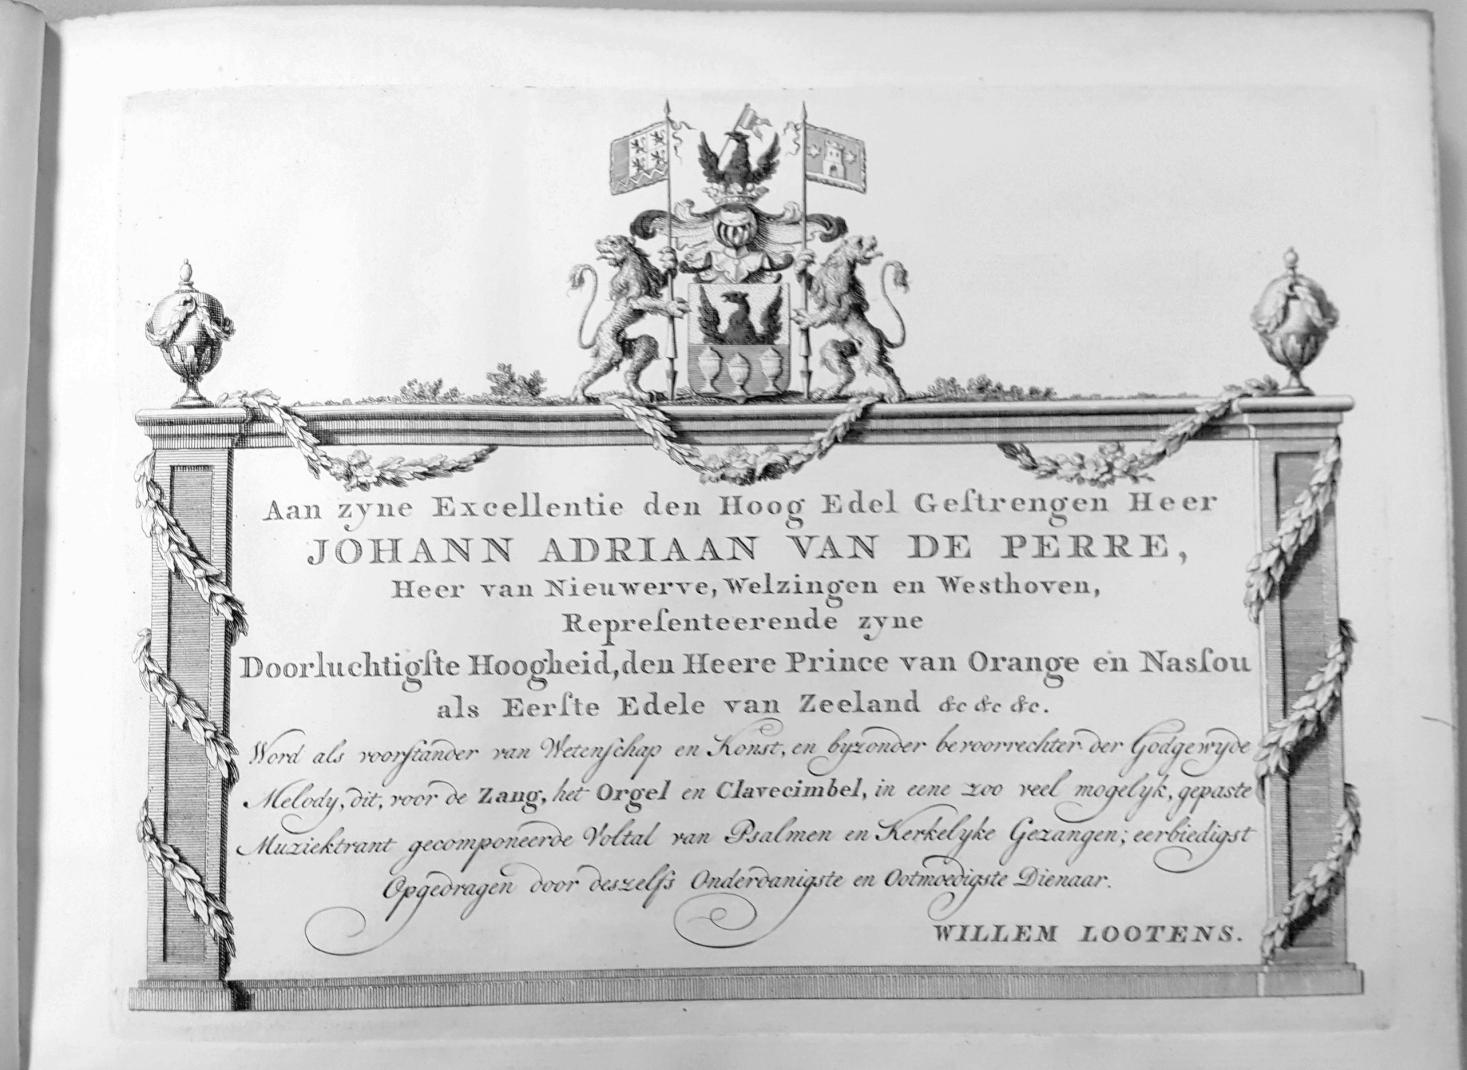 Aan zyne Excellentie den Hoog Edel Geſtrengen Heer
JOHANN ADRIAAN VAN DE PERRE,
Heer van Nieuwerve, Welzingen en Westhoven,
Repreſenteerende zyne
Doorluchtigſte Hoogheid, den Heere Prince van Orange en Nasſou
als Eerſte Edele van Zeeland &c &c &c.
Word als voorſtander van Wetenſchap en Konst, en byzonder bevoorrechter der Godgewyde
Melody, dit, voor de Zang, het Orgel en Clavecimbel, in eene zoo veel mogelyk, gepaste
Muziektrant gecomponeerde Voltal van Psalmen en Kerkelyke Gezangen; eerbiedigst
Opgedragen door deszelfs Onderdanigste en Ootmoedigste Dienaar.
WILLEM LOOTENS.